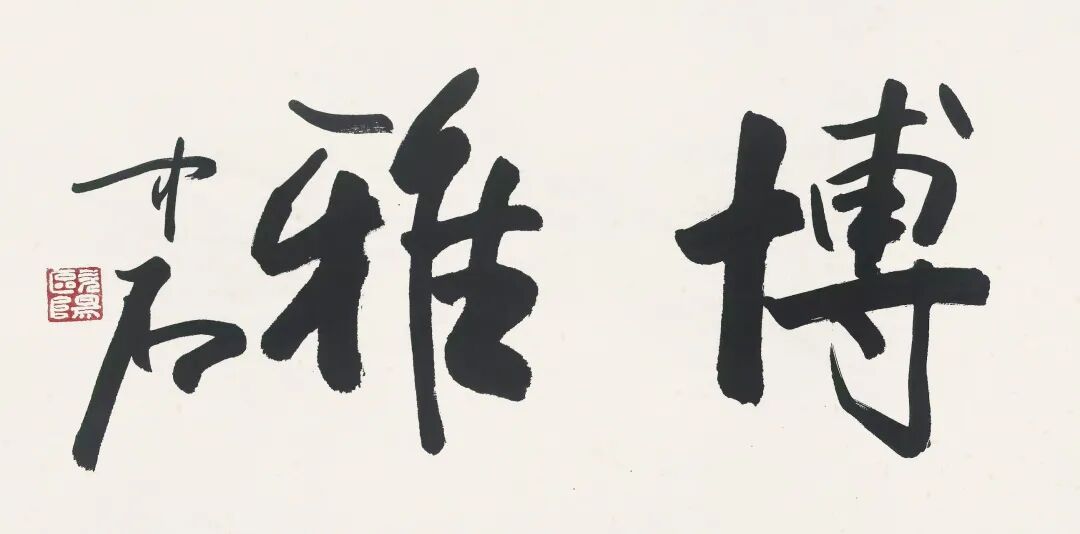 博雅
中石